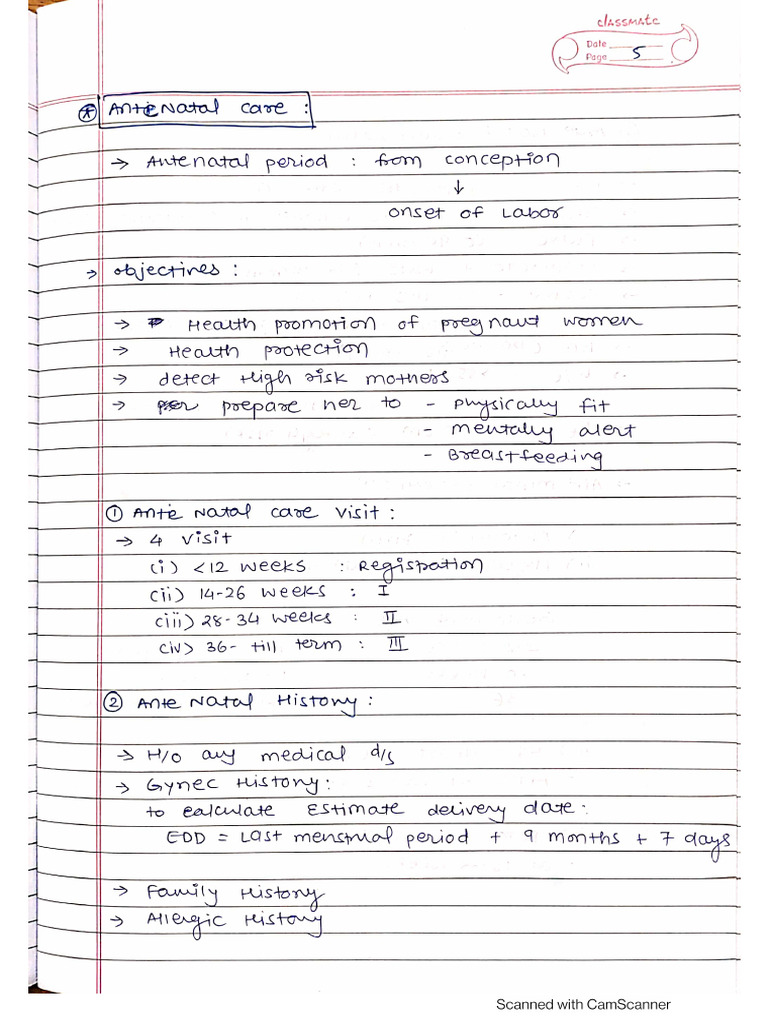 classmate
Date
Page 5
Ante Natal Care :
→ Antenatal period : from conception
↓
onset of Labor
→ objectives :
→ Health promotion of pregnant women
→ Health protection
→ detect High risk mothers
→ prepare her to - physically fit
- mentally alert
- Breastfeeding
① Ante Natal care visit :
→ 4 visit
(i) <12 weeks : Registration
(ii) 14-26 weeks : I
(iii) 28-34 weeks : II
(iv) 36- till term : III
② Ante Natal History :
→ H/o any medical d/s
→ Gynec History :
to calculate Estimate delivery date :
EDD = Last menstrual period + 9 months + 7 days
→ Family History
→ Allergic History
Scanned with CamScanner